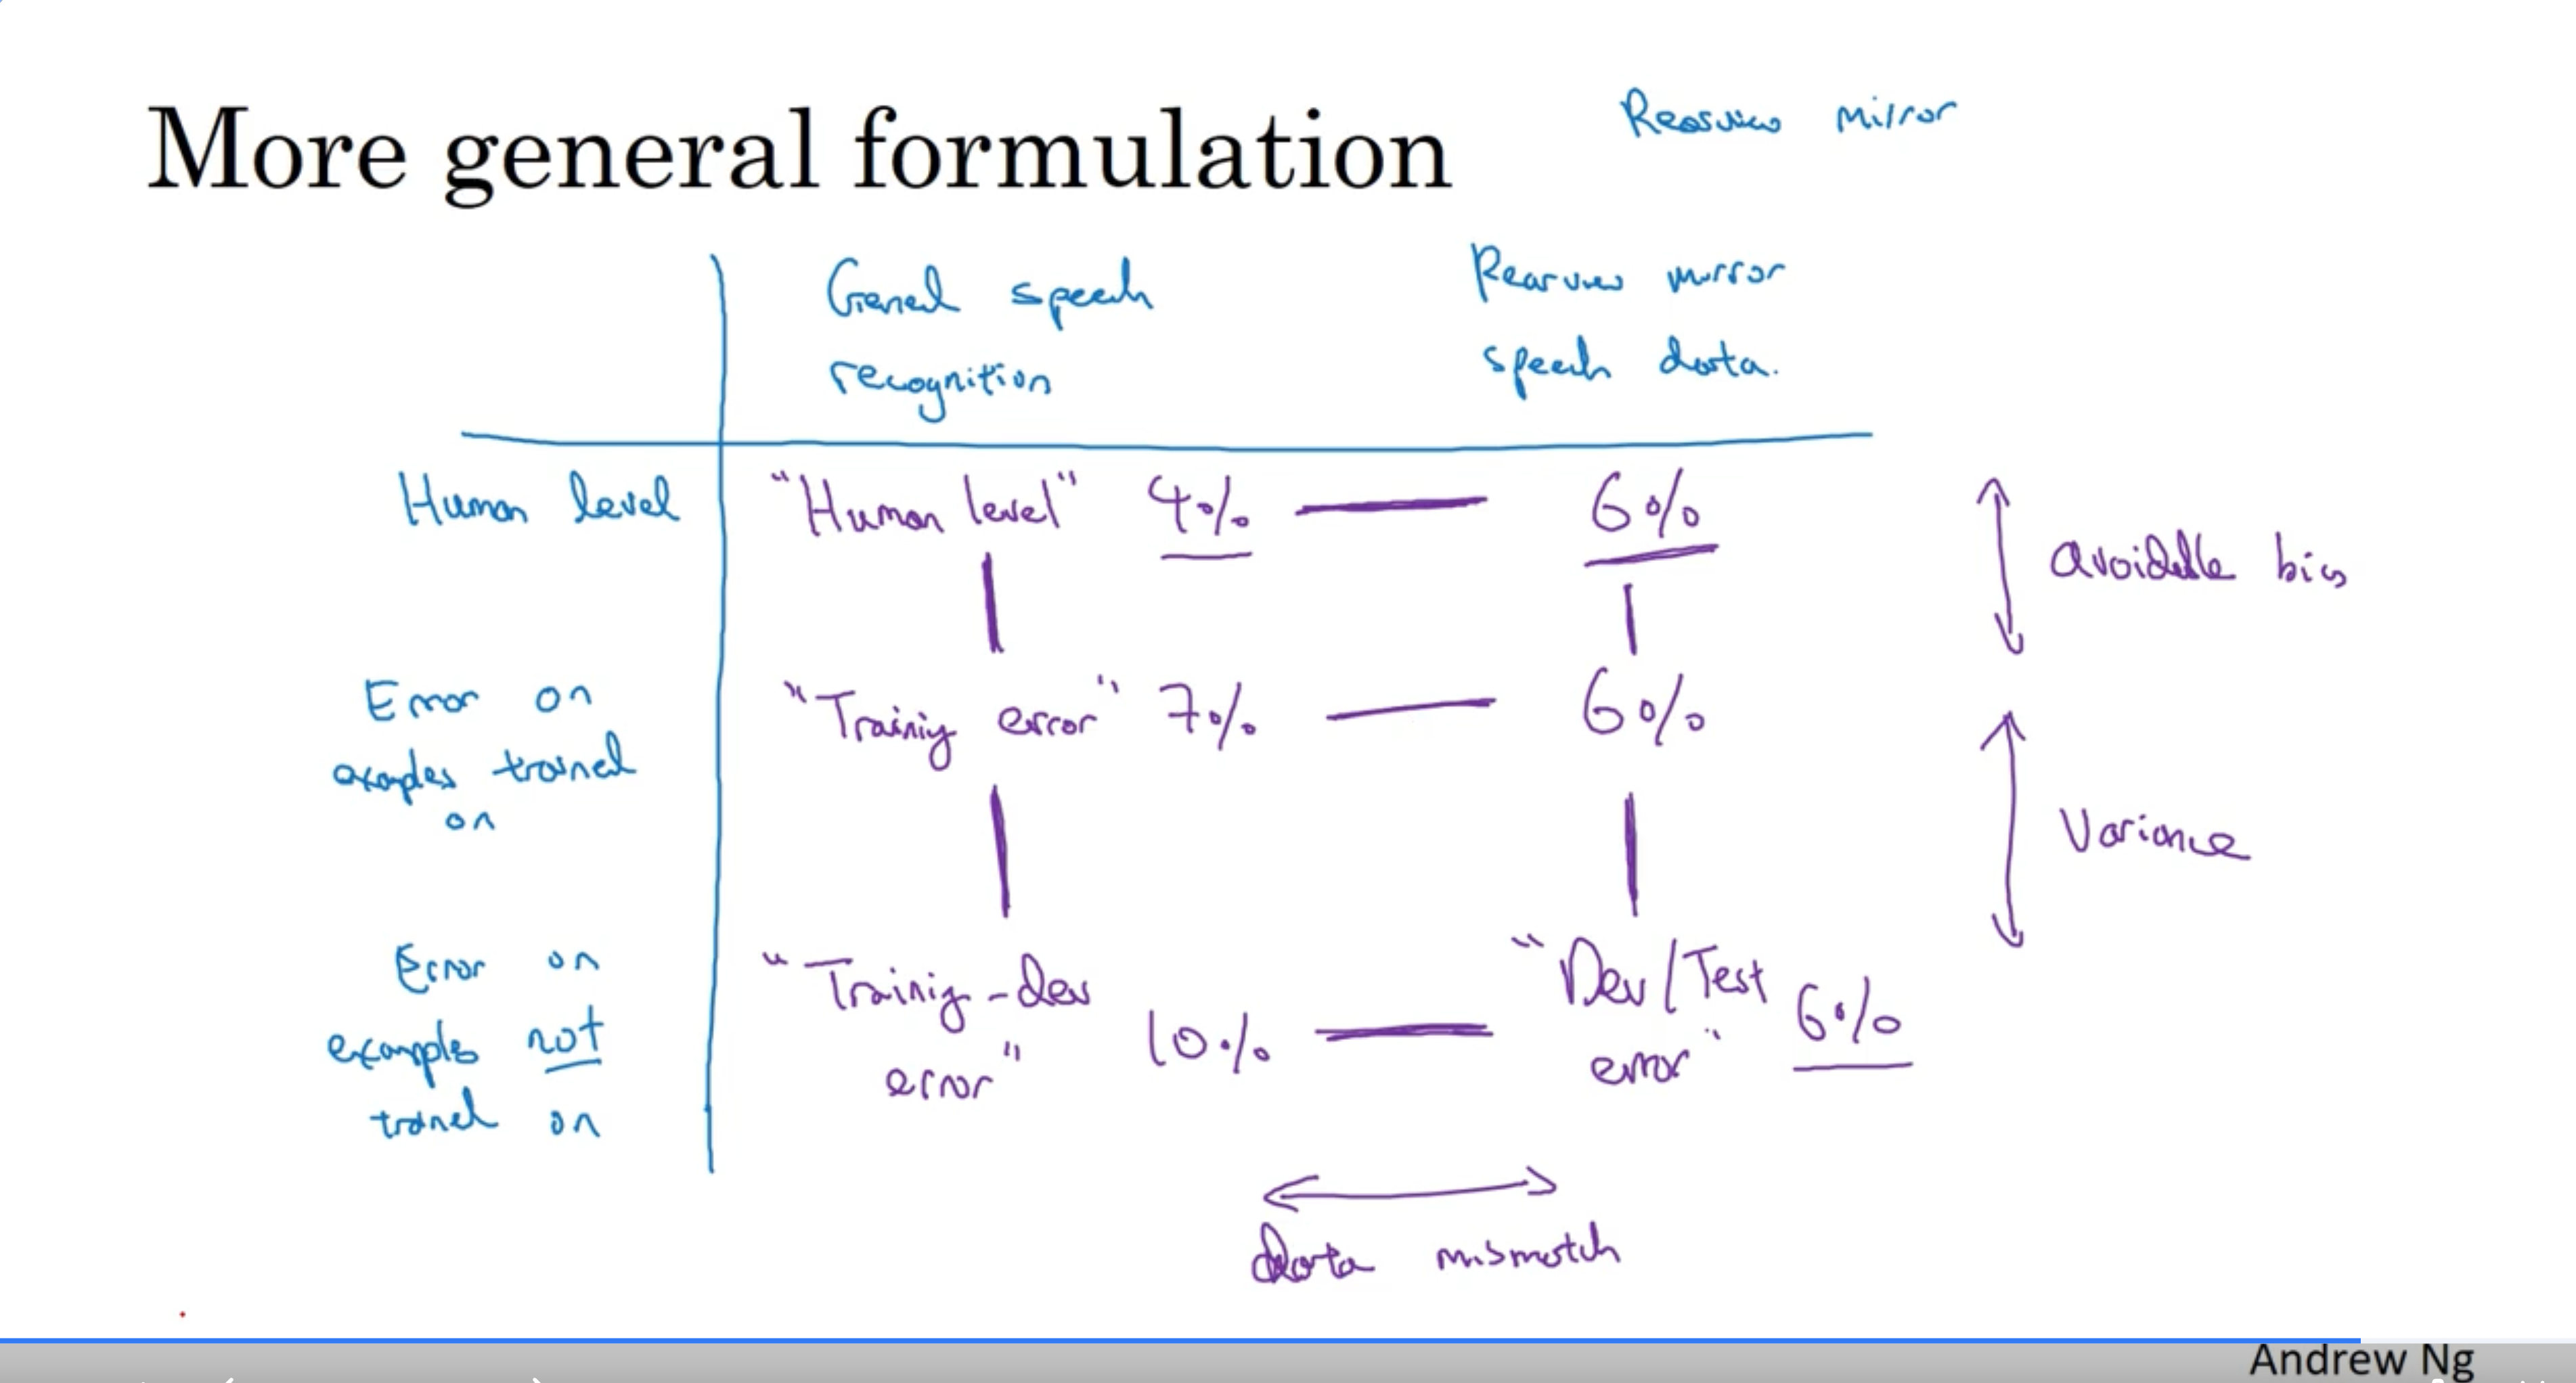 More general formulation
Rearview mirror
General speech recognition
Rearview mirror speech data.
Human level
"Human level" 4%
6%
Error on examples trained on
"Training error" 7%
6%
Error on examples not trained on
"Training-dev error" 10%
"Dev/Test error" 6%
Avoidable bias
Variance
Data mismatch
Andrew Ng